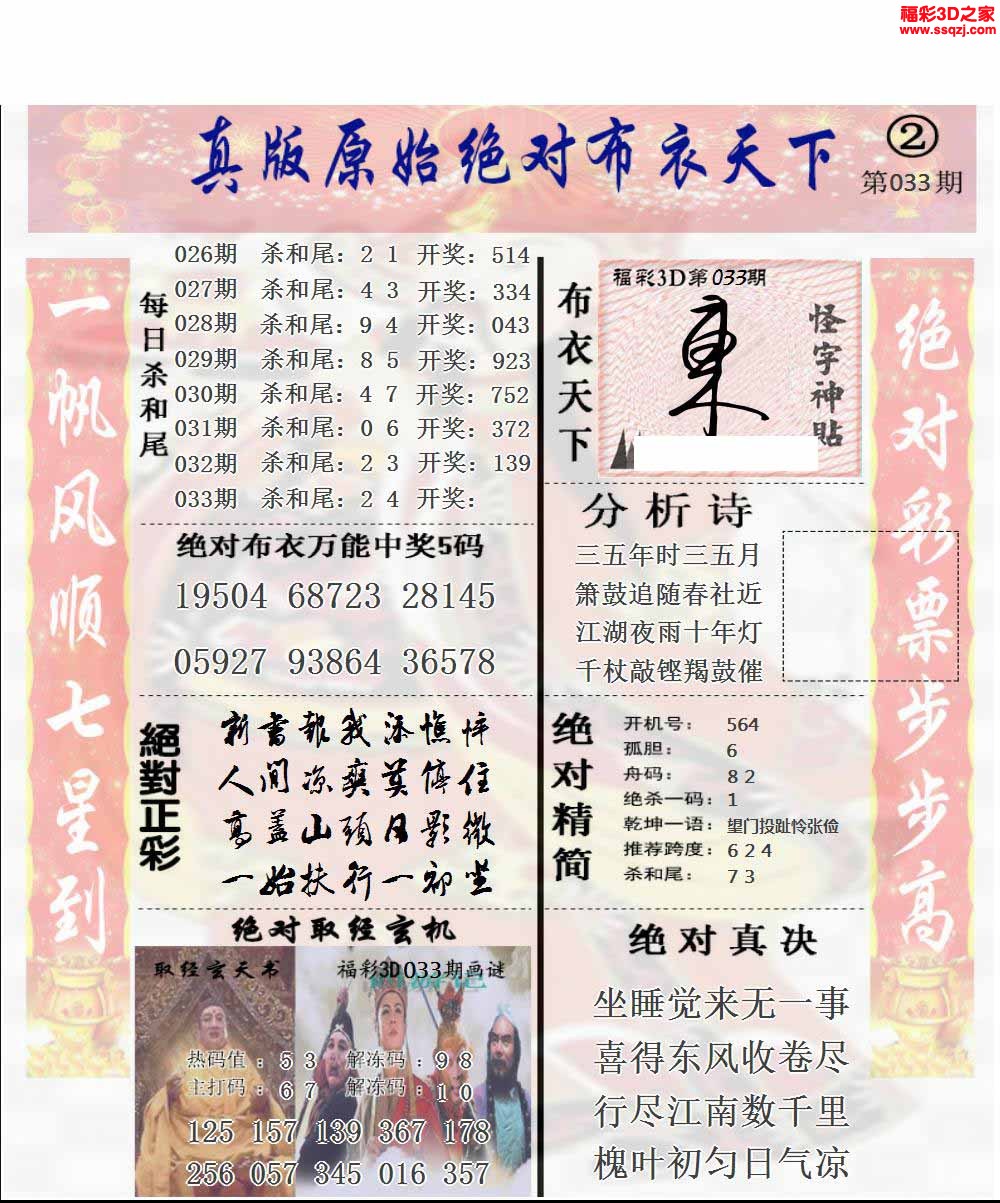 福彩3D之家
www.ssqzj.com
真版原始绝对布衣天下
②
第033期
一帆风顺七星到
每日杀和尾
026期 杀和尾：2 1 开奖：514
027期 杀和尾：4 3 开奖：334
028期 杀和尾：9 4 开奖：043
029期 杀和尾：8 5 开奖：923
030期 杀和尾：4 7 开奖：752
031期 杀和尾：0 6 开奖：372
032期 杀和尾：2 3 开奖：139
033期 杀和尾：2 4 开奖：
布衣天下
福彩3D第033期
怪字神贴
绝对彩票步步高
绝对布衣万能中奖5码
19504 68723 28145
05927 93864 36578
分析诗
三五年时三五月
箫鼓追随春社近
江湖夜雨十年灯
千杖敲铿羯鼓催
絕對正彩
新书报我添憔悴
人间凉爽莫停住
高盖山头日影微
一始扶行一初坐
绝对精简
开机号： 564
孤胆： 6
舟码： 8 2
绝杀一码： 1
乾坤一语： 望门投趾怜张俭
推荐跨度： 6 2 4
杀和尾： 7 3
绝对取经玄机
取经玄天书
福彩3D033期画谜
热码值：5 3 解冻码：9 8
主打码：6 7 解冻码：1 0
125 157 139 367 178
256 057 345 016 357
绝对真决
坐睡觉来无一事
喜得东风收卷尽
行尽江南数千里
槐叶初匀日气凉